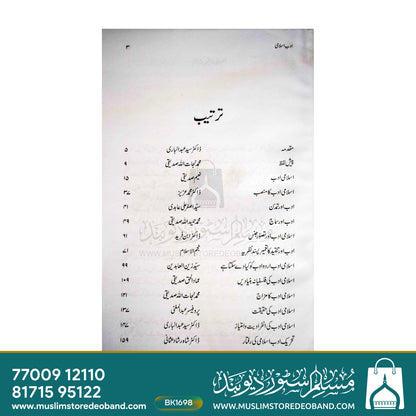 ادب اسلامی ۳
ترتیب
مقدمہ ڈاکٹر سید عبدالباری ۵
پیش لفظ محمد نجات اللہ صدیقی ۹
اسلامی ادب نعیم صدیقی ۱۵
اسلامی ادب کا منصب ڈاکٹر محمد عزیز ۳۷
ادب اور تمدن سید اصغر علی عابدی ۴۱
ادب اور سماج محمد حمید اللہ صدیقی ۴۹
اسلامی ادب اور تصور جنس ڈاکٹر ابن فرید ۶۱
ادب اور تنقید کا تعمیر پسند نظریہ نجم الاسلام ۷۱
اسلامی ادب، اردو ادب کو کیا دے سکتا ہے سید زین العابدین ۹۹
اسلامی ادب کی فلسفیانہ بنیادیں عماد الحق صدیقی ۱۰۹
اسلامی ادب کا مزاج محمد نجات اللہ صدیقی ۱۲۱
اسلامی ادب کی حقیقت پروفیسر عبدالمغنی ۱۳۷
اسلامی ادب کی انفرادیت و امتیاز ڈاکٹر سید عبدالباری ۱۴۷
تحریک ادب اسلامی کی رفتار ڈاکٹر شاہ رشاد عثمانی ۱۵۹
مسلم اسٹور دیوبند
WWW.MUSLIMSTOREDEOBAND.COM
77009 12110
81715 95122
www.muslimstoredeoband.com
BK1698
مسلم اسٹور دیوبند
WWW.MUSLIMSTOREDEOBAND.COM